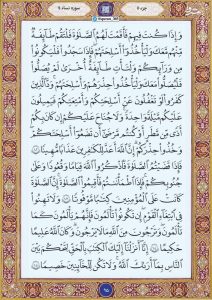 جزء ٥
سوره نساء ٤
وَإِذَا كُنتَ فِيهِمْ فَأَقَمْتَ لَهُمُ الصَّلَوٰةَ فَلْتَقُمْ طَآئِفَةٌ
مِّنْهُم مَّعَكَ وَلْيَأْخُذُوٓا۟ أَسْلِحَتَهُمْ فَإِذَا سَجَدُوا۟ فَلْيَكُونُوا۟
مِن وَرَآئِكُمْ وَلْتَأْتِ طَآئِفَةٌ أُخْرَىٰ لَمْ يُصَلُّوا۟
فَلْيُصَلُّوا۟ مَعَكَ وَلْيَأْخُذُوا۟ حِذْرَهُمْ وَأَسْلِحَتَهُمْ وَدَّ ٱلَّذِينَ
كَفَرُوا۟ لَوْ تَغْفُلُونَ عَنْ أَسْلِحَتِكُمْ وَأَمْتِعَتِكُمْ فَيَمِيلُونَ
عَلَيْكُم مَّيْلَةً وَٰحِدَةً وَلَا جُنَاحَ عَلَيْكُمْ إِن كَانَ بِكُمْ
أَذًى مِّن مَّطَرٍ أَوْ كُنتُم مَّرْضَىٰٓ أَن تَضَعُوٓا۟ أَسْلِحَتَكُمْ
وَخُذُوا۟ حِذْرَكُمْ إِنَّ ٱللَّهَ أَعَدَّ لِلْكَٰفِرِينَ عَذَابًا مُّهِينًا ١٠٢
فَإِذَا قَضَيْتُمُ ٱلصَّلَوٰةَ فَٱذْكُرُوا۟ ٱللَّهَ قِيَٰمًا وَقُعُودًا وَعَلَىٰ
جُنُوبِكُمْ فَإِذَا ٱطْمَأْنَنتُمْ فَأَقِيمُوا۟ ٱلصَّلَوٰةَ إِنَّ ٱلصَّلَوٰةَ
كَانَتْ عَلَى ٱلْمُؤْمِنِينَ كِتَٰبًا مَّوْقُوتًا ١٠٣ وَلَا تَهِنُوا۟
فِى ٱبْتِغَآءِ ٱلْقَوْمِ إِن تَكُونُوا۟ تَأْلَمُونَ فَإِنَّهُمْ يَأْلَمُونَ كَمَا
تَأْلَمُونَ وَتَرْجُونَ مِنَ ٱللَّهِ مَا لَا يَرْجُونَ وَكَانَ ٱللَّهُ عَلِيمًا
حَكِيمًا ١٠٤ إِنَّآ أَنزَلْنَآ إِلَيْكَ ٱلْكِتَٰبَ بِٱلْحَقِّ لِتَحْكُمَ بَيْنَ
ٱلنَّاسِ بِمَآ أَرَىٰكَ ٱللَّهُ وَلَا تَكُن لِّلْخَآئِنِينَ خَصِيمًا ١٠٥
٩٥